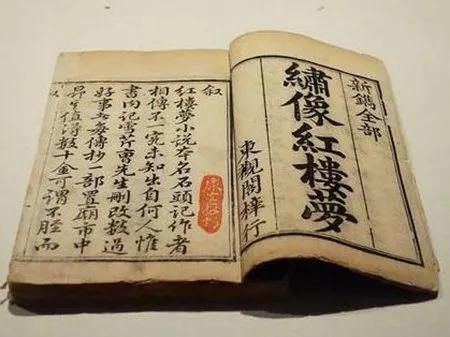 新鐫全部
繡像紅樓夢
東觀閣梓行
叙
紅樓夢小說本名石頭記作者
相傳不一究未知出自何人惟
書內記雪芹曹先生刪改數過
好事者每傳抄一部置廟市中
昂其值得數十金可謂不脛而